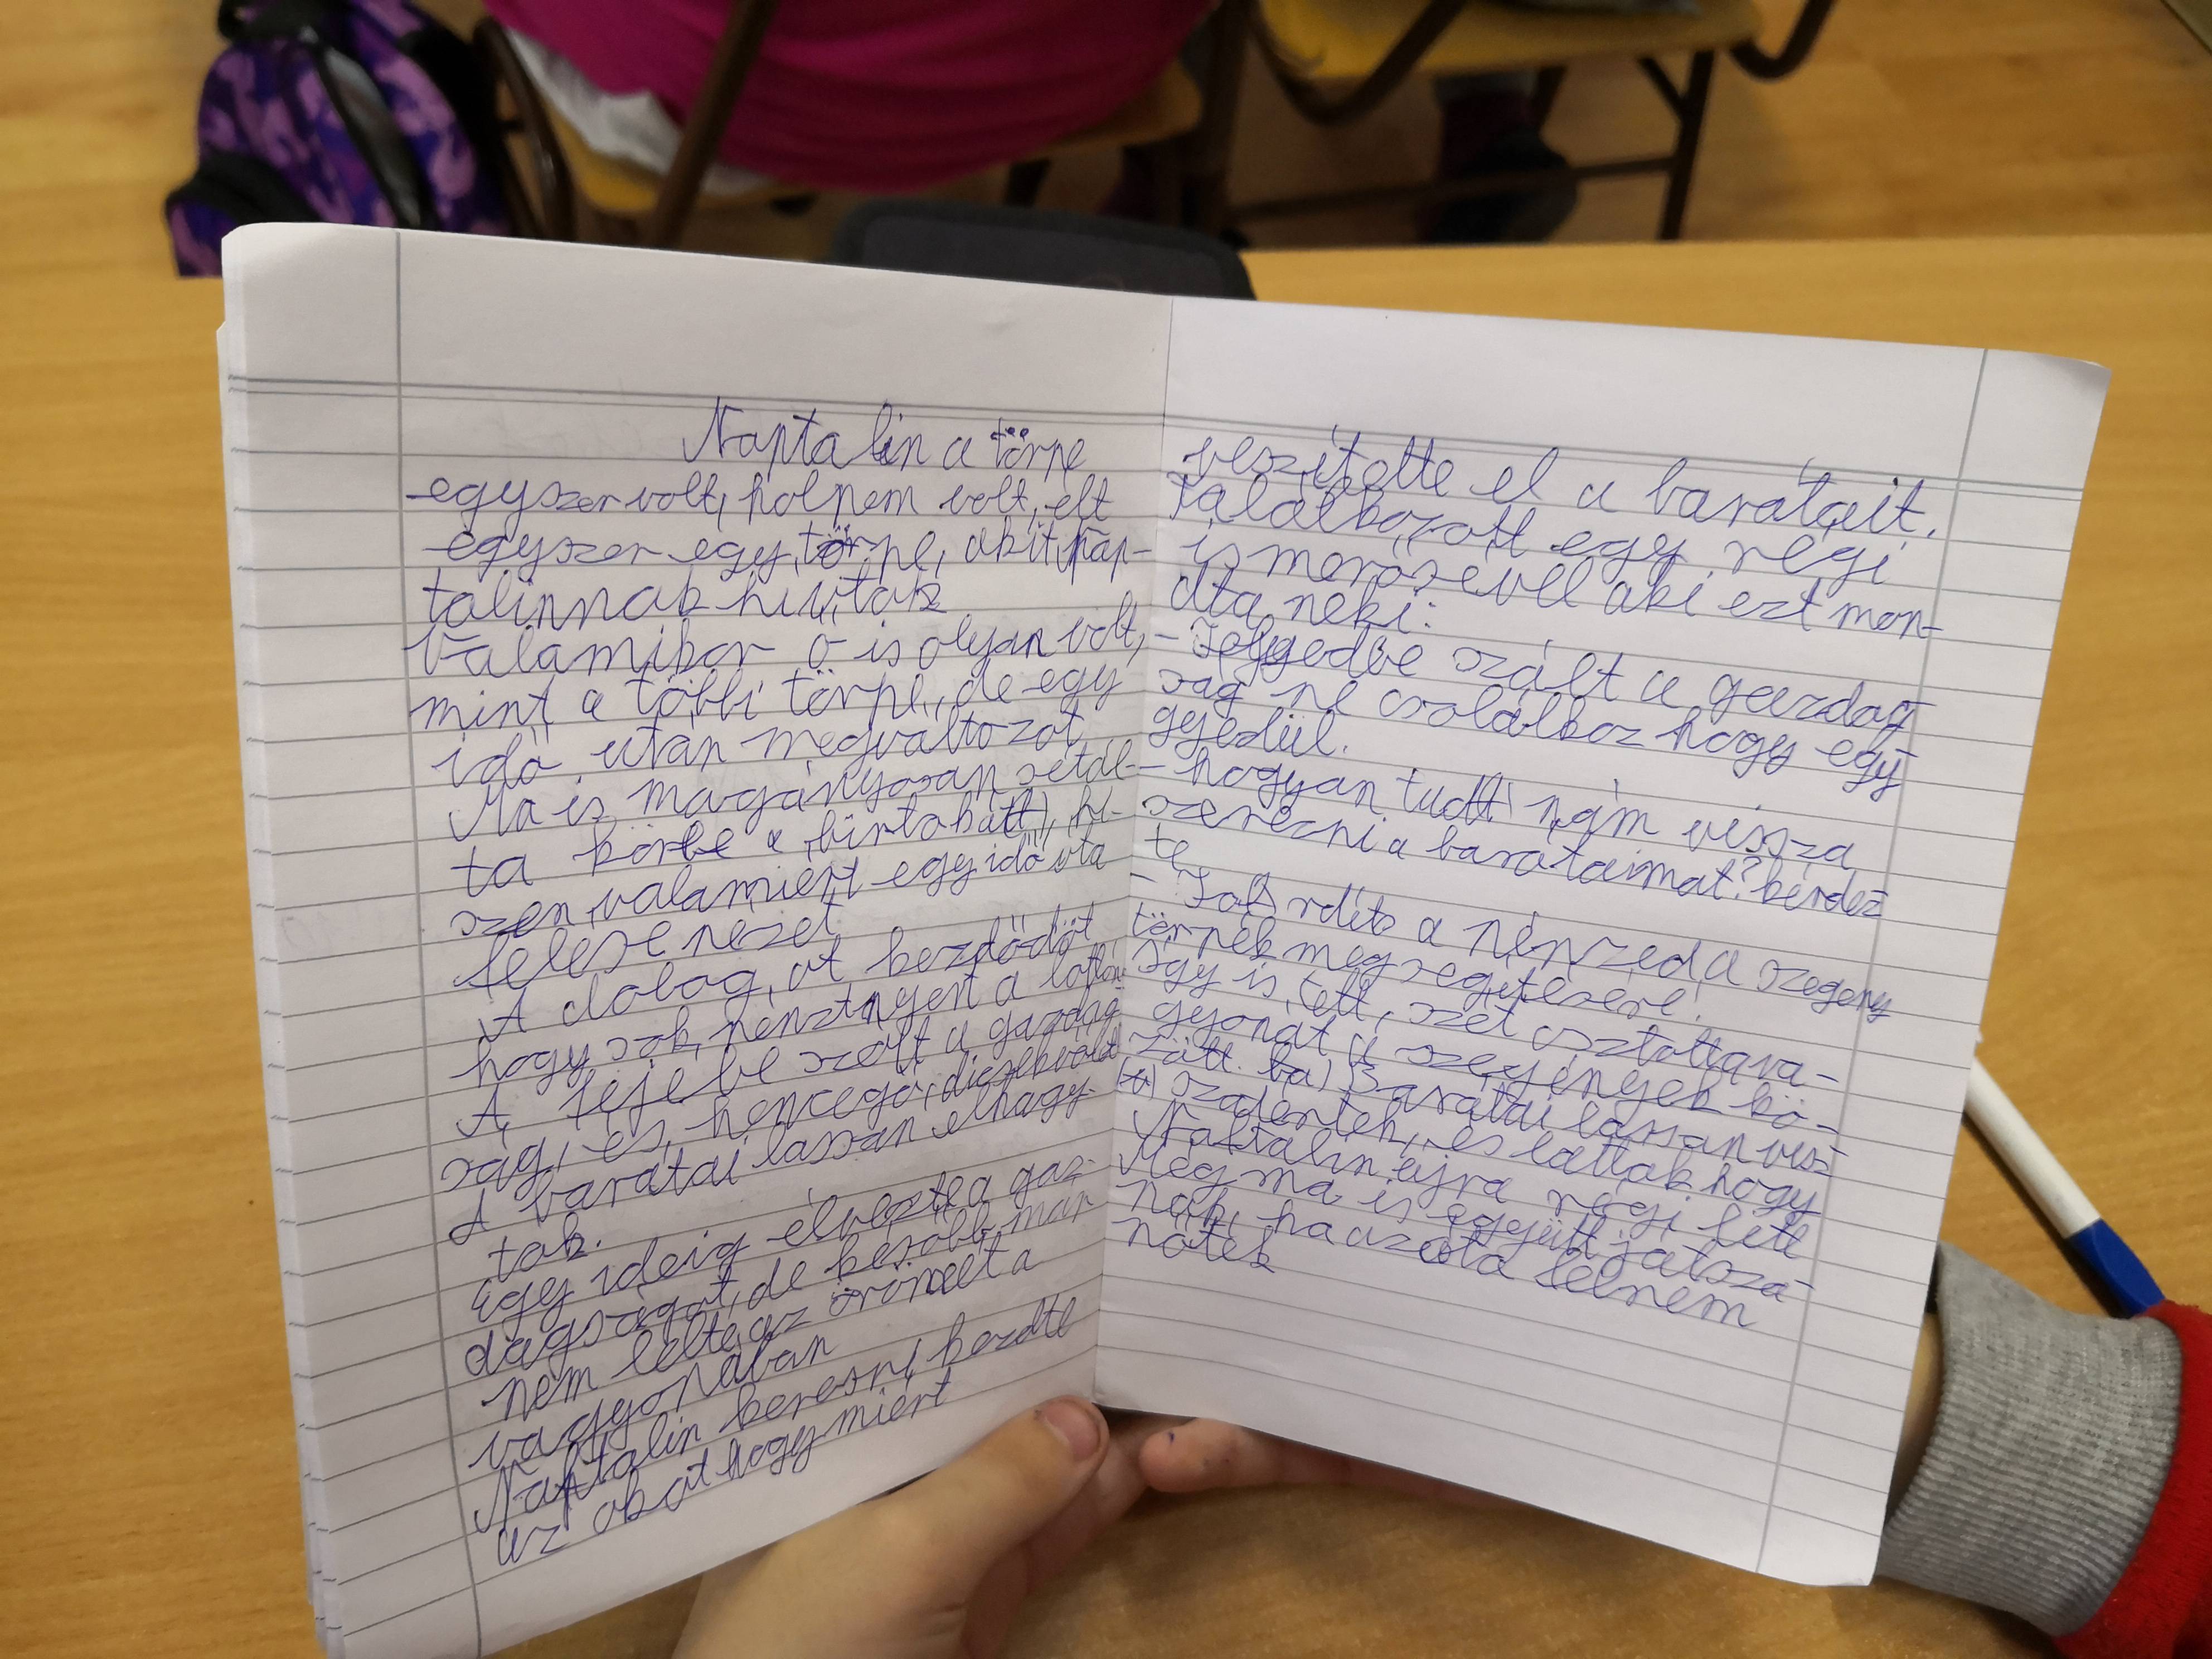 Naptalin a törpe
egyszer volt, hol nem volt, elt
egyszer egy törpe, akit nap-
talinnak hívtak
Valamikor ő is olyan volt,
mint a többi törpe, de egy
idő után megváltozot
Ma is magányosan setál-
ta körbe a birtokátt, hi-
szen valamiért egy idő uta
felese nezet
A dolog ot kezdődöt
hogy sok penzt nyert a lottón
A fejebe szált a gazdag
ság, es hencegő, dicsekvő lett
A baratai lassan elhagy-
tak.
Egy ideig élvezte a gaz-
dagságot, de később mar
nem lelte az örömeét a
vagyonában
Naptalin keresni kezdte
az okát hogy miért
veszitette el a barátait.
Találkozott egy régi
ismerősevel aki ezt mon-
dta neki:
- Fejedbe szált a gazdag
ság ne csodálkoz hogy egy
gyedül.
- hogyan tudti nám vissza
szerezni a barataimat? kérdez
te
- Fordíts a pénzed a szegeny
törpék megsegitésére!
Így is tett, szet osztotta va-
gyonát a szegények kö-
zött. ba) Barátai lassan visz
szatértek, és lattak hogy
Naftalin ujra régi lett
Még ma is együtt játsza-
nak, ha azóta fel nem
nőtek